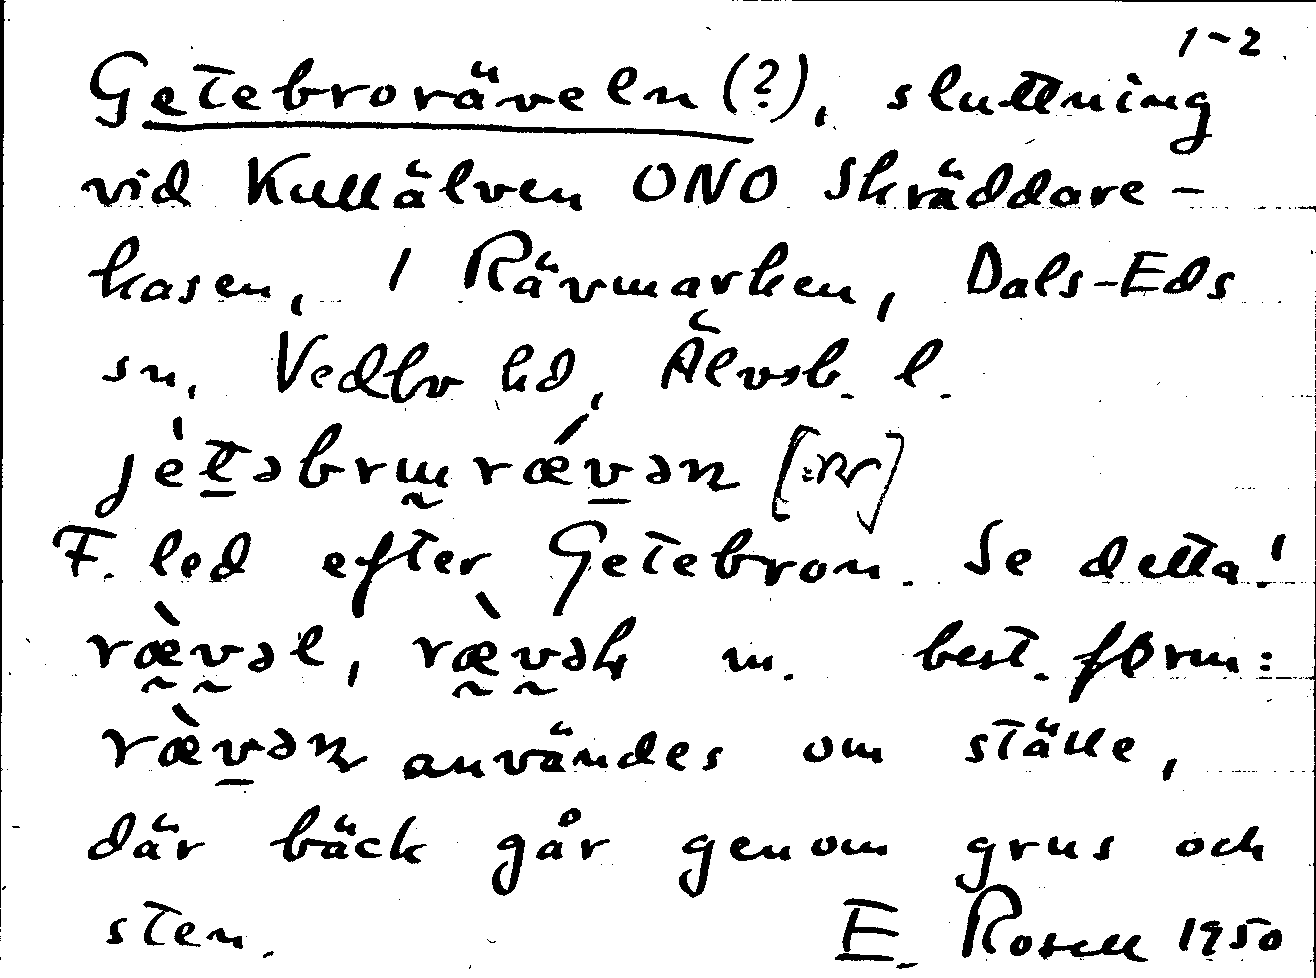 1-2
Getebroräveln (?), sluttning
vid Kullälven ONO Skräddare-
kasen, 1 Rävmarken, Dals-Eds
sn, Vedbo hd, Älvsb. l.
F. led efter Getebron. Se detta!
m. best. form:
användes om ställe,
där bäck går genom grus och
sten. E. Rosell 1950